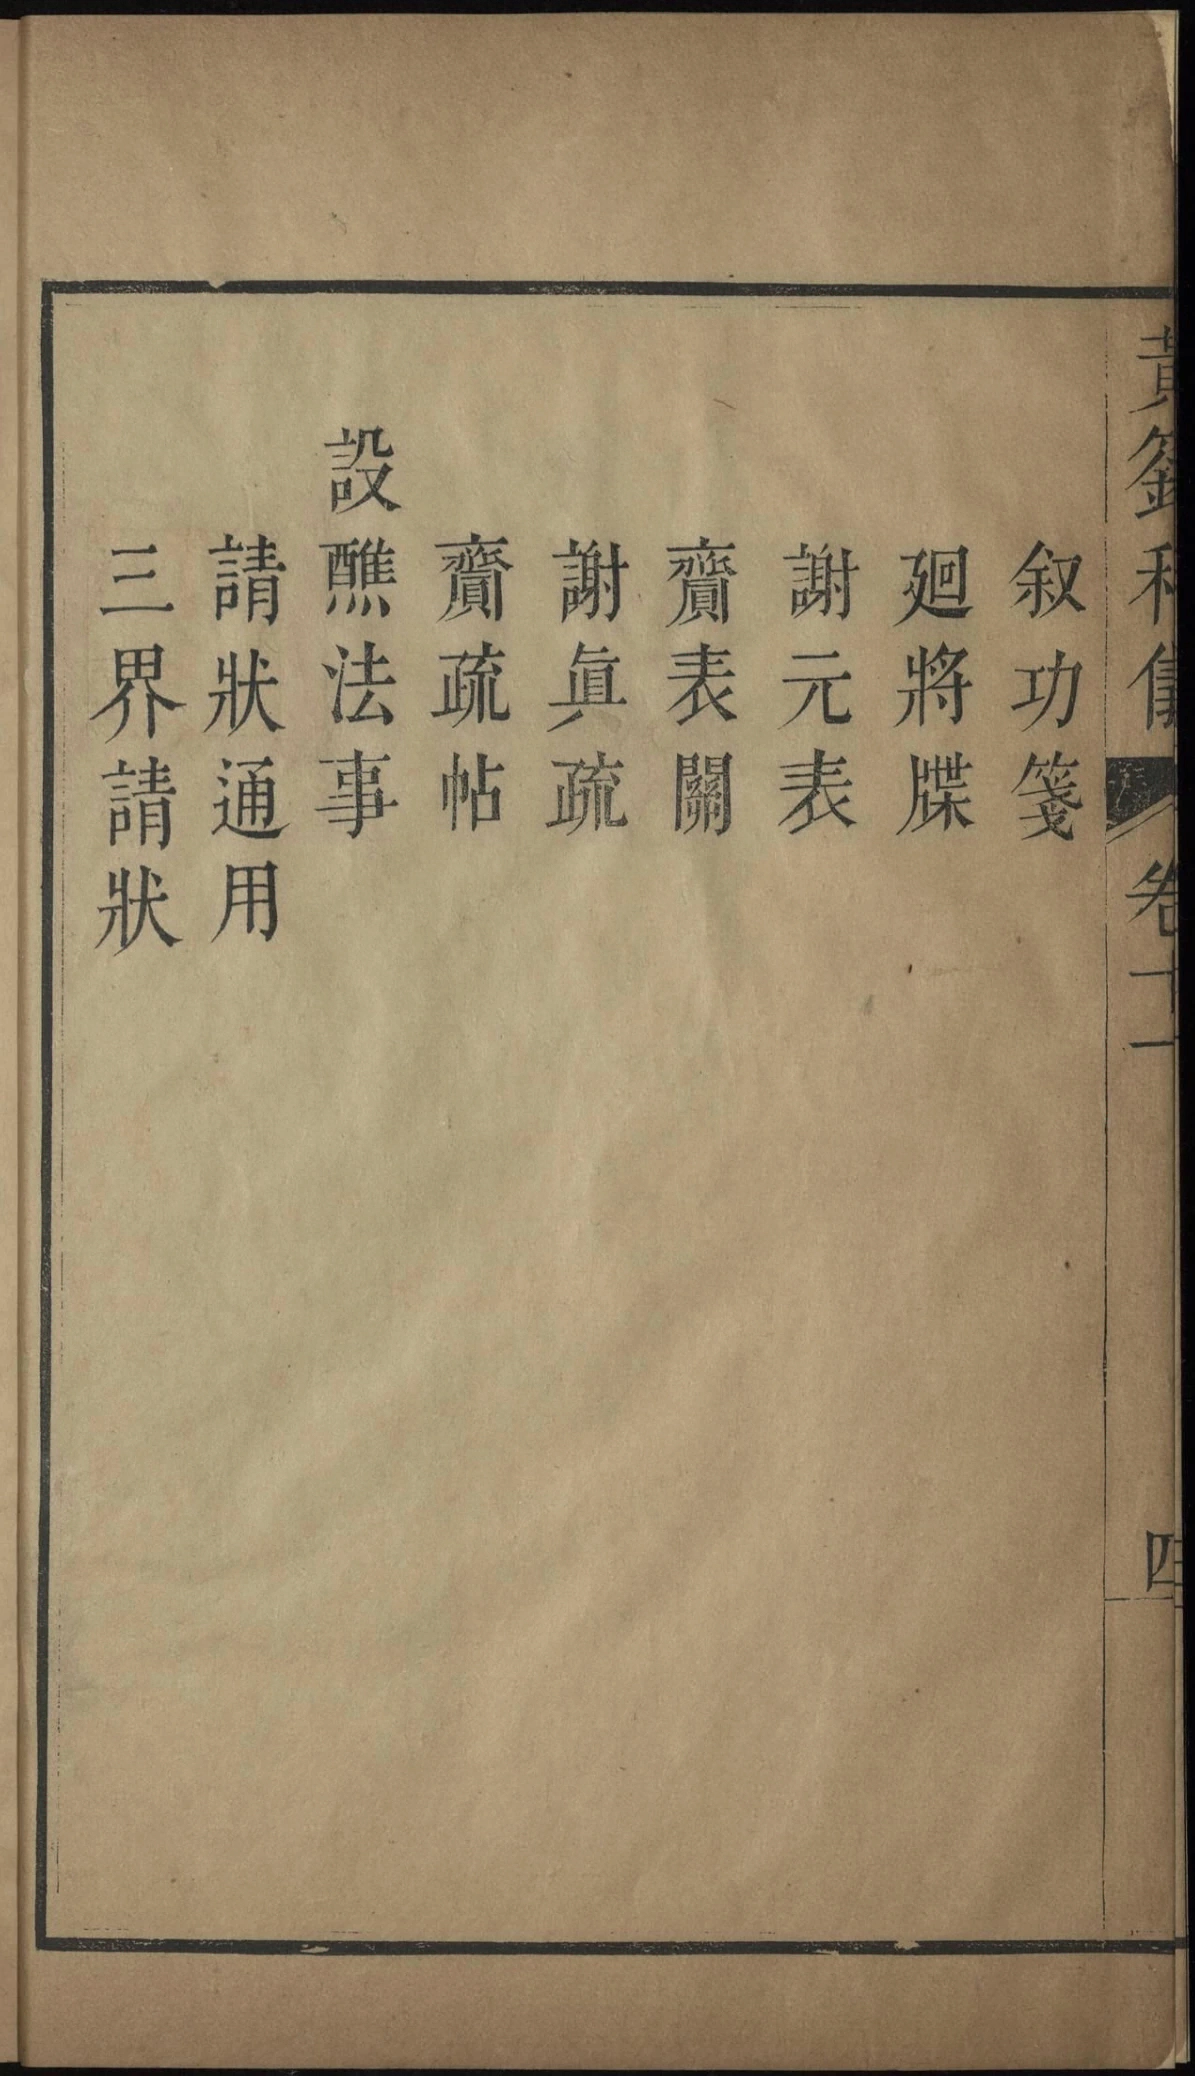 黃籙科儀 卷十一 四
叙功箋
廻將牒
謝元表
齎表關
謝眞疏
齎疏帖
設醮法事
請狀通用
三界請狀